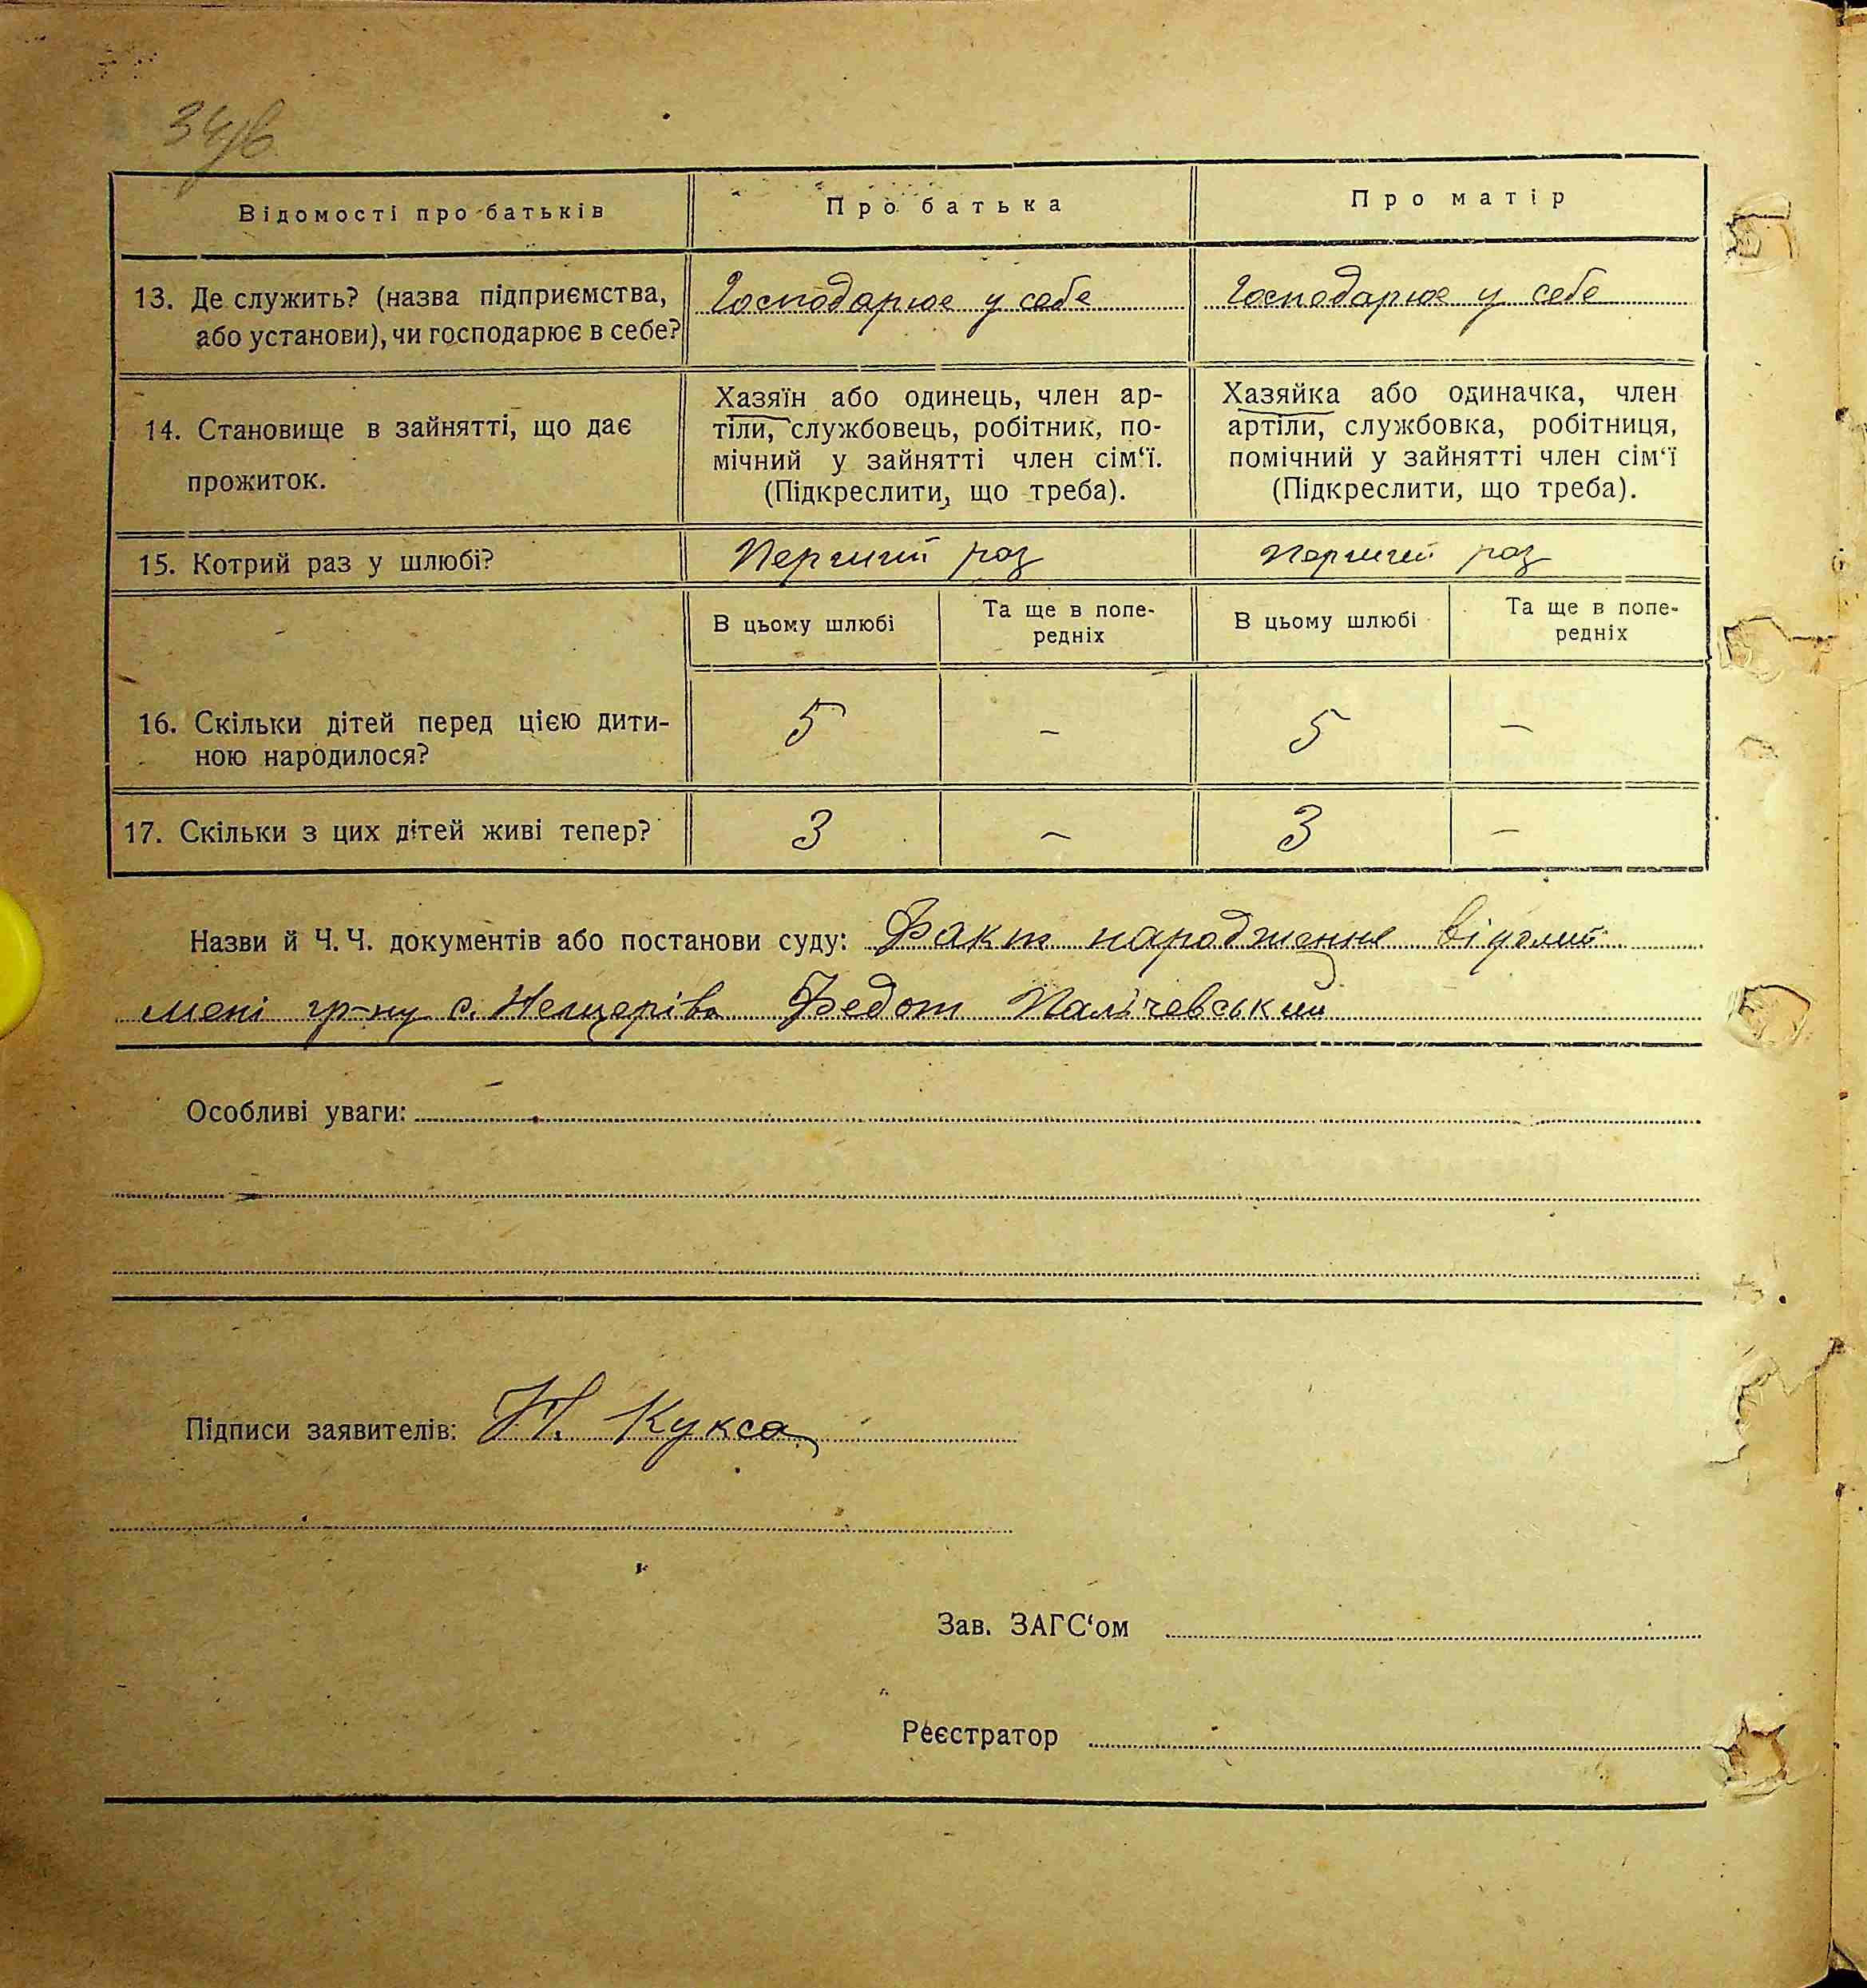 34/в
Відомості про батьків
Про батька
Про матір
13. Де служить? (назва підприємства,
або установи), чи господарює в себе?
Господарює у себе
Господарює у себе
14. Становище в зайнятті, що дає
прожиток.
Хазяїн або одинець, член ар-
тіли, службовець, робітник, по-
мічний у зайнятті член сім‘ї.
(Підкреслити, що треба).
Хазяйка або одиначка, член
артіли, службовка, робітниця,
помічний у зайнятті член сім‘ї
(Підкреслити, що треба).
15. Котрий раз у шлюбі?
Перший раз
Перший раз
В цьому шлюбі
Та ще в попе-
редніх
В цьому шлюбі
Та ще в попе-
редніх
16. Скільки дітей перед цією дити-
ною народилося?
5
–
5
–
17. Скільки з цих дітей живі тепер?
3
–
3
–
Назви й Ч. Ч. документів або постанови суду: Факт народження відомий
мені гр-ну с. Нещерів Федот Палічевський
Особливі уваги:
Підписи заявителів: Н. Кукса
Зав. ЗАГС‘ом
Реєстратор